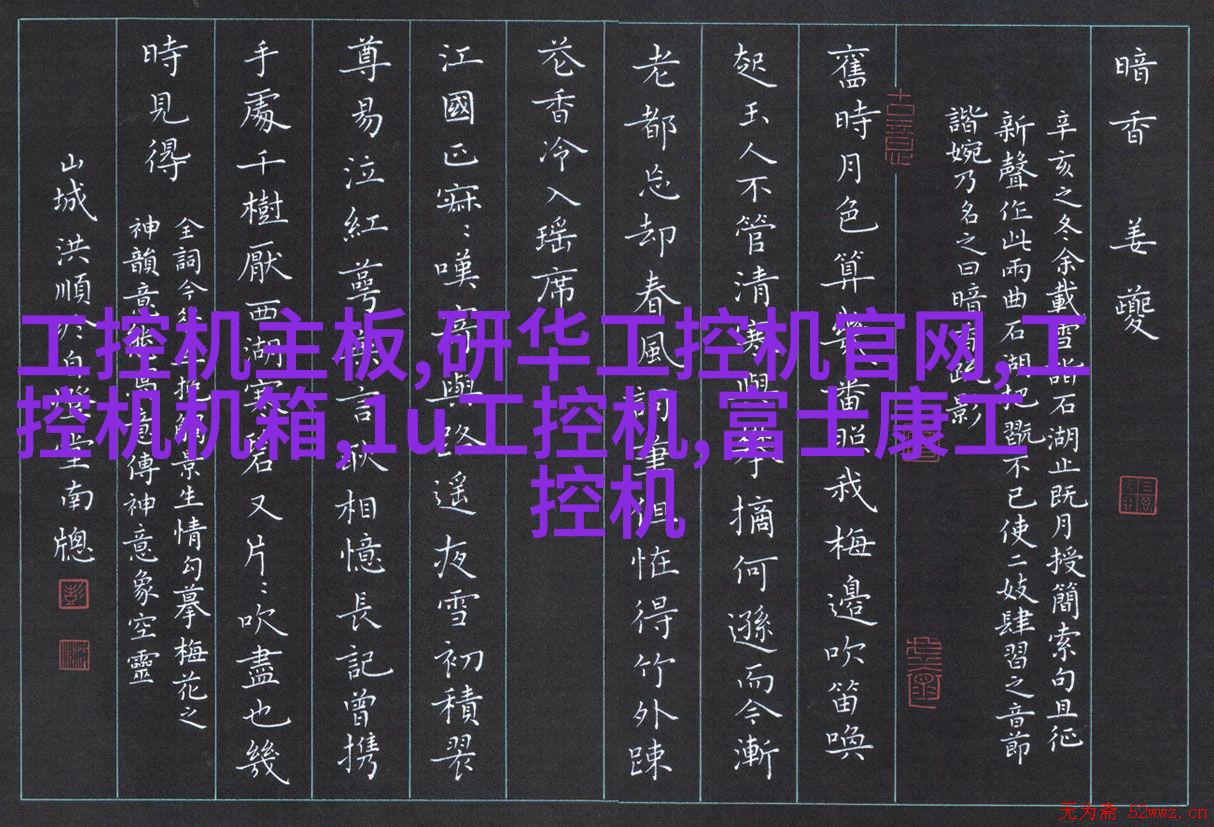 暗香 姜夔
辛亥之冬余載雪詣石湖止既月授簡索句且征
新聲作此兩曲石湖把翫不已使二妓肆習之音節
諧婉乃名之曰暗香疏影
古意
舊時月色算幾番照我梅邊吹笛喚
起玉人不管清寒與攀摘何遜而今漸
老都忘却春風詞筆但怪得竹外疎
花香冷入瑤席
江國正寂：嘆寄與路遙夜雪初積翠
尊易泣紅萼無言耿相憶長記曾攜
手處千樹壓西湖寒碧又片：吹盡也幾
時見得
全詞今 景生情勾摹梅花之
神韻意 傳神意象空靈
山城洪順 堂南牕
工控机主板,研华工控机官网,工
控机机箱,1u工控机,富士康工
控机
无为斋 52wwz.cn